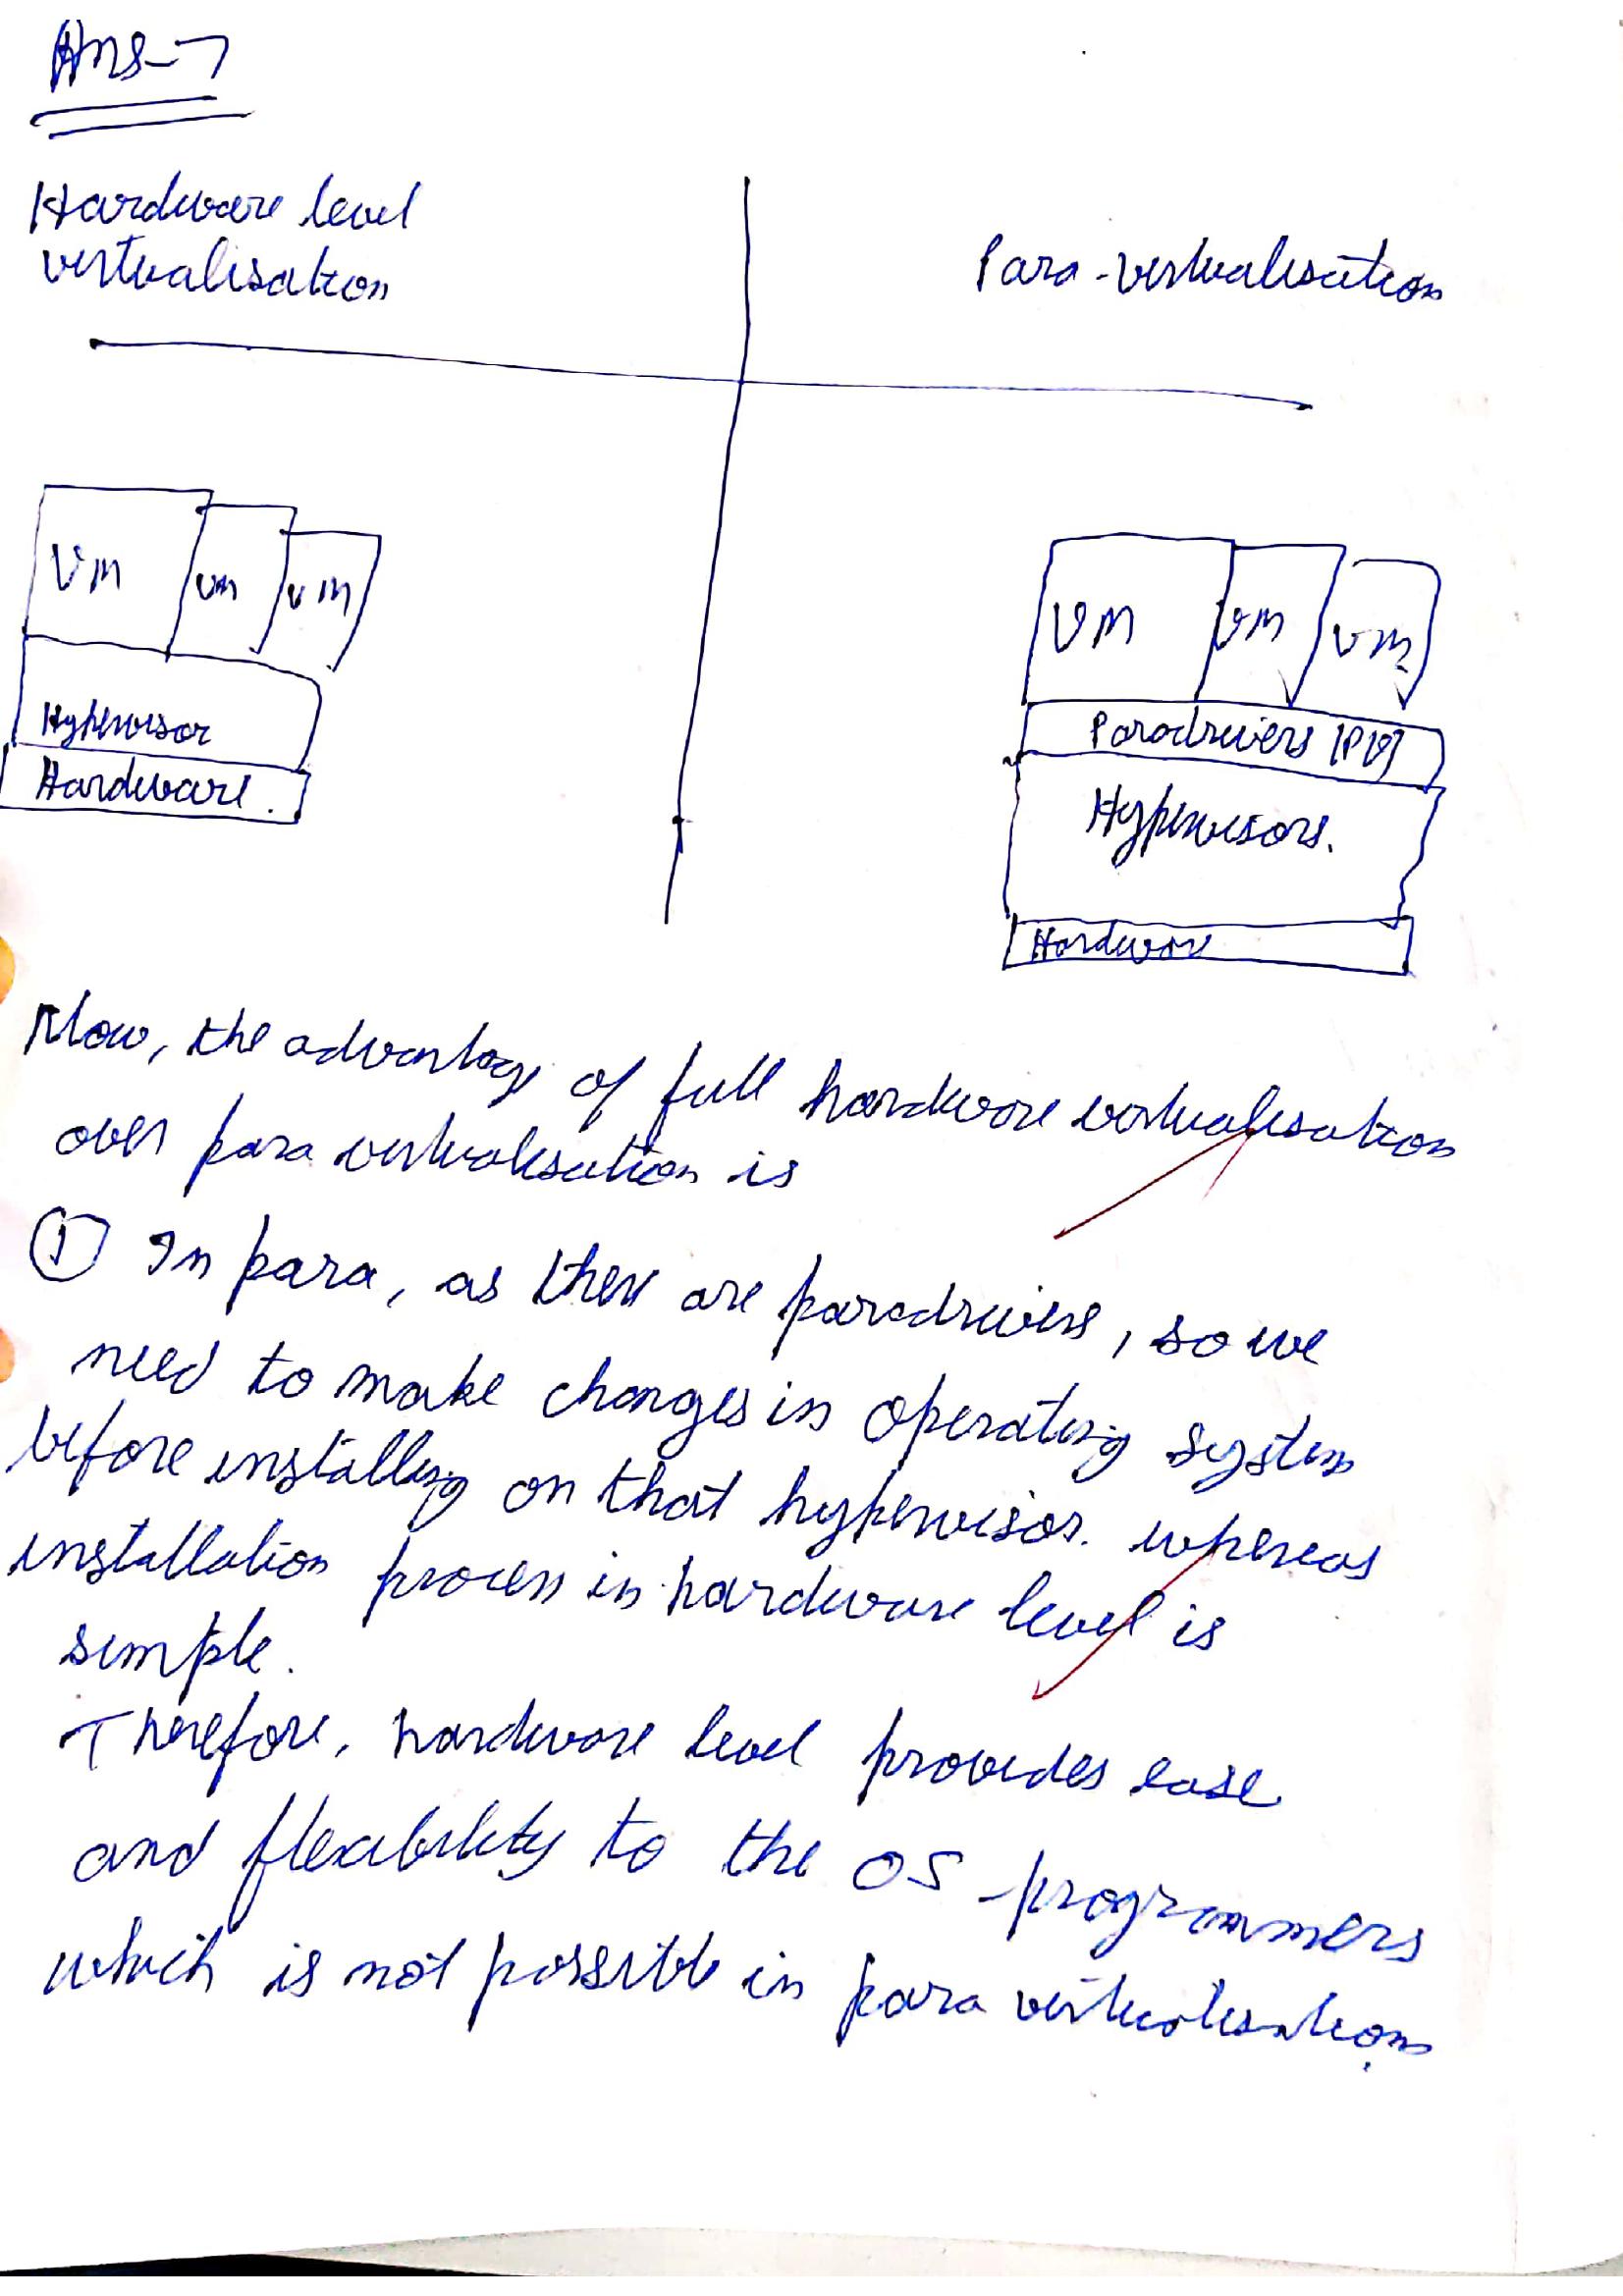 Ans-7
Hardware level
virtualisation
Para-virtualisation
VM
VM
VM
Hypervisor
Hardware.
VM
VM
VM
Paradrivers [PV]
Hypervisors.
Hardware
Now, the advantage of full hardware virtualisation
over para virtualisation is
① In para, as there are paradrivers, so we
need to make changes in operating system
before installing on that hypervisor. whereas
installation process in hardware level is
simple.
Therefore, hardware level provides ease
and flexibility to the OS-programmers
which is not possible in para virtualisation.